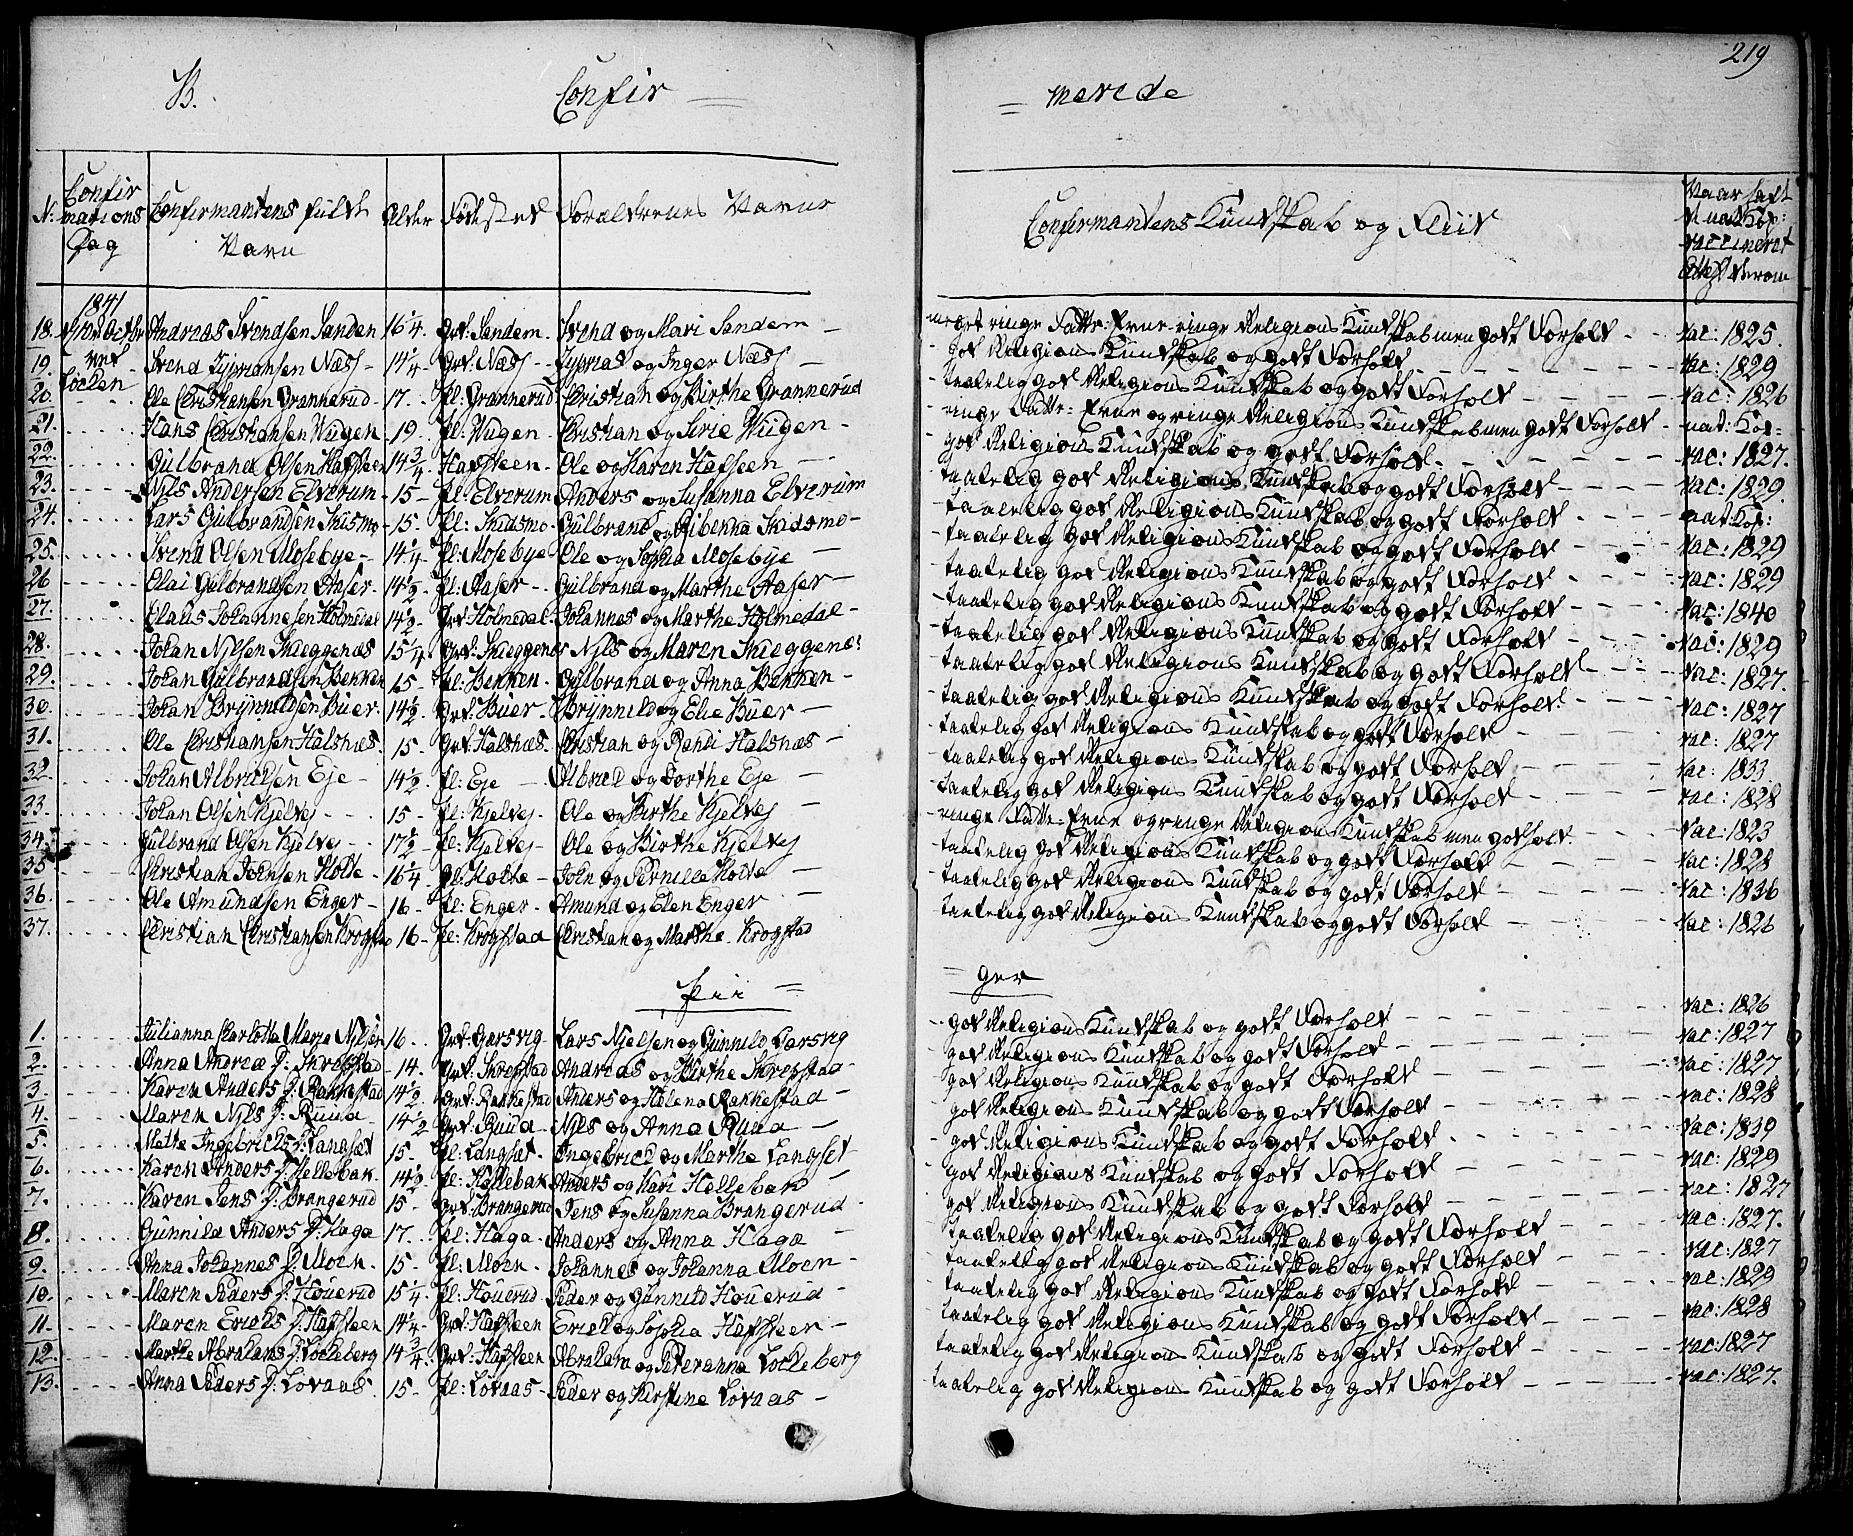 219
B. Confir = = merede
N: Confirmations Dag Confirmantens fulde Navn Alder Fødested Forældrenes Navne Confirmantens Kundskab og Fliid Naar haft nat: Kop: vaccineret Attest derom
1841
18. Andreas Svendsen Sanden 16 1/4 Grd: Sandem Svend og Mari Sandem meget ringe Fatte-Evne ringe Religions Kundskab men godt Forhold vac: 1825.
19. ved Svend Næss 14 1/4 Grd: Næss og Inger Næss god Religions Kundskab og godt Forhold vac: 1829
20. Ole Christiansen Grannerud 17 Pl: Grannerud Christian og Birthe Grannerud taalelig god Religions Kundskab og godt Forhold vac: 1826
21. Hans Christiansen Wiigen 19 Pl: Wiigen Christian og Sirie Wiigen ringe Fatte-Evne og ringe Religions Kundskab men godt Forhold nat: Kop:
22. Gulbrand Olsen Hafsteen 14 3/4 Hafsteen Ole og Karen Hafsteen god Religions Kundskab og godt Forhold vac: 1827.
23. Niels Andersen Elverum 15 Pl: Elverum Anders og Susanna Elverum taalelig god Religions Kundskab og godt Forhold vac: 1829.
24. Lars Gulbrandsen Skidsmo 15 Pl: Skidsmo Gulbrand og Skidsmo taalelig god Religions Kundskab og godt Forhold nat: Kop:
25. Svend Olsen Mosebye 14 1/4 Pl: Mosebye Ole og Sophia Mosebye taalelig god Religions Kundskab og godt Forhold vac: 1829
26 Olai Gulbrandsen Haser 14 1/2 Pl: Haser Gulbrand og Marthe Haser taalelig god Religions Kundskab og godt Forhold vac: 1829
27. Claus Johannesen Holmedal 14 1/2 Grd: Holmedal Johannes og Marthe Holmedal taalelig god Religions Kundskab og godt Forhold vac: 1840
28. Johan Nielsen Skieggenæs 15 1/4 Grd: Niels og Maren taalelig god Religions Kundskab og godt Forhold vac: 1829
29. Johan Gulbrandsen Bekken 15 Pl: Bekken Gulbrand og Anna Bekken taalelig god Religions Kundskab og godt Forhold vac: 1827.
30. Johan Brynnildsen Buer 14 1/2 Grd: Buer Brynnild og Elie Buer taalelig god Religions Kundskab og godt Forhold vac: 1827
31. Ole Christiansen Halsnæs 15 Grd: Halsnæs Christian og Randi Halsnæs taalelig god Religions Kundskab og godt Forhold vac: 1827
32 Johan Albrichsen Eje 14 1/2 Pl: Eje Albrich og Dorthe Eje taalelig god Religions Kundskab og godt Forhold vac: 1833
33. Johan Olsen Kjelvej 15 Pl: Kjelvej Ole og Birthe Kjelvej taalelig god Religions Kundskab og godt Forhold vac: 1828
34. Gulbrand Olsen Kjelvej 17 1/2 Pl: Kjelvej Ole og Birthe Kjelvej ringe Fatte-Evne og ringe Religions Kundskab men vac: 1823
35 Christian Johnsen Holte 16 1/4 Pl: Holte John og Pernille Holte taalelig god Religions Kundskab og godt Forhold vac: 1828
36. Ole Amundsen Enger 16 Pl: Enger Amund og Elen Enger taalelig god Religions Kundskab og godt Forhold vac: 1836
37. Christian Christiansen Krogstad 16 Pl: Krogstad Christian og Marthe Krogstad taalelig god Religions Kundskab og godt Forhold vac: 1826
Pii = = ger
1. Julianna Charlotha Marja Nielsen 16 Grd: Garsvig Lars Nielsen og Gunnild Garsvig god Religions Kundskab og godt Forhold vac: 1826
2. Anna Andrea D: 14 Grd: Andreas og Birthe god Religions Kundskab og godt Forhold vac: 1827
3. Karen Anders D: Rakkestad 14 1/2 Grd: Rakkestad Anders og Helena Rakkestad god Religions Kundskab og godt Forhold vac: 1827
4. Maren Niels D: Ruud 14 1/2 Grd: Ruud Niels og Anna Ruud god Religions Kundskab og godt Forhold vac: 1828
5. Mathe Ingebrichs D: Langset 15 Pl: Langset Ingebrich og Marthe Langset god Religions Kundskab og godt Forhold vac: 1839
6. Karen Anders D: Hellebæk 14 1/2 Pl: Hellebæk Anders og Kari Hellebæk god Religions Kundskab og godt Forhold vac: 1829
7. Karen Jens D: Brangerud 15 Grd: Brangerud Jens og Susanna Brangerud god Religions Kundskab og godt Forhold vac: 1827
8. Gunnild Anders D: Haga 17 Pl: Haga Anders og Anna Haga taalelig god Religions Kundskab og godt Forhold vac: 1827.
9. Anna Johannes D: Moen 15 Pl: Moen Johannes og Johanna Moen taalelig god Religions Kundskab og godt Forhold vac: 1827
10. Maren Peders D: Houerud 15 1/4 Pl: Houerud Peder og Gunnild Houerud taalelig god Religions Kundskab og godt Forhold vac: 1829
11. Maren Erichs D: Hafsteen 14 1/4 Grd: Hafsteen Erich og Sophia Hafsteen taalelig god Religions Kundskab og godt Forhold vac: 1828
12. Marthe Abrahams D: Lockeberg 14 3/4 Grd: Hafsteen Abraham og Peteranna Lockeberg taalelig god Religions Kundskab og godt Forhold vac: 1827
13. Anna Peders D: Lovaas 15 Pl: Lovaas Peder og Kirstine Lovaas taalelig god Religions Kundskab og godt Forhold vac: 1827.